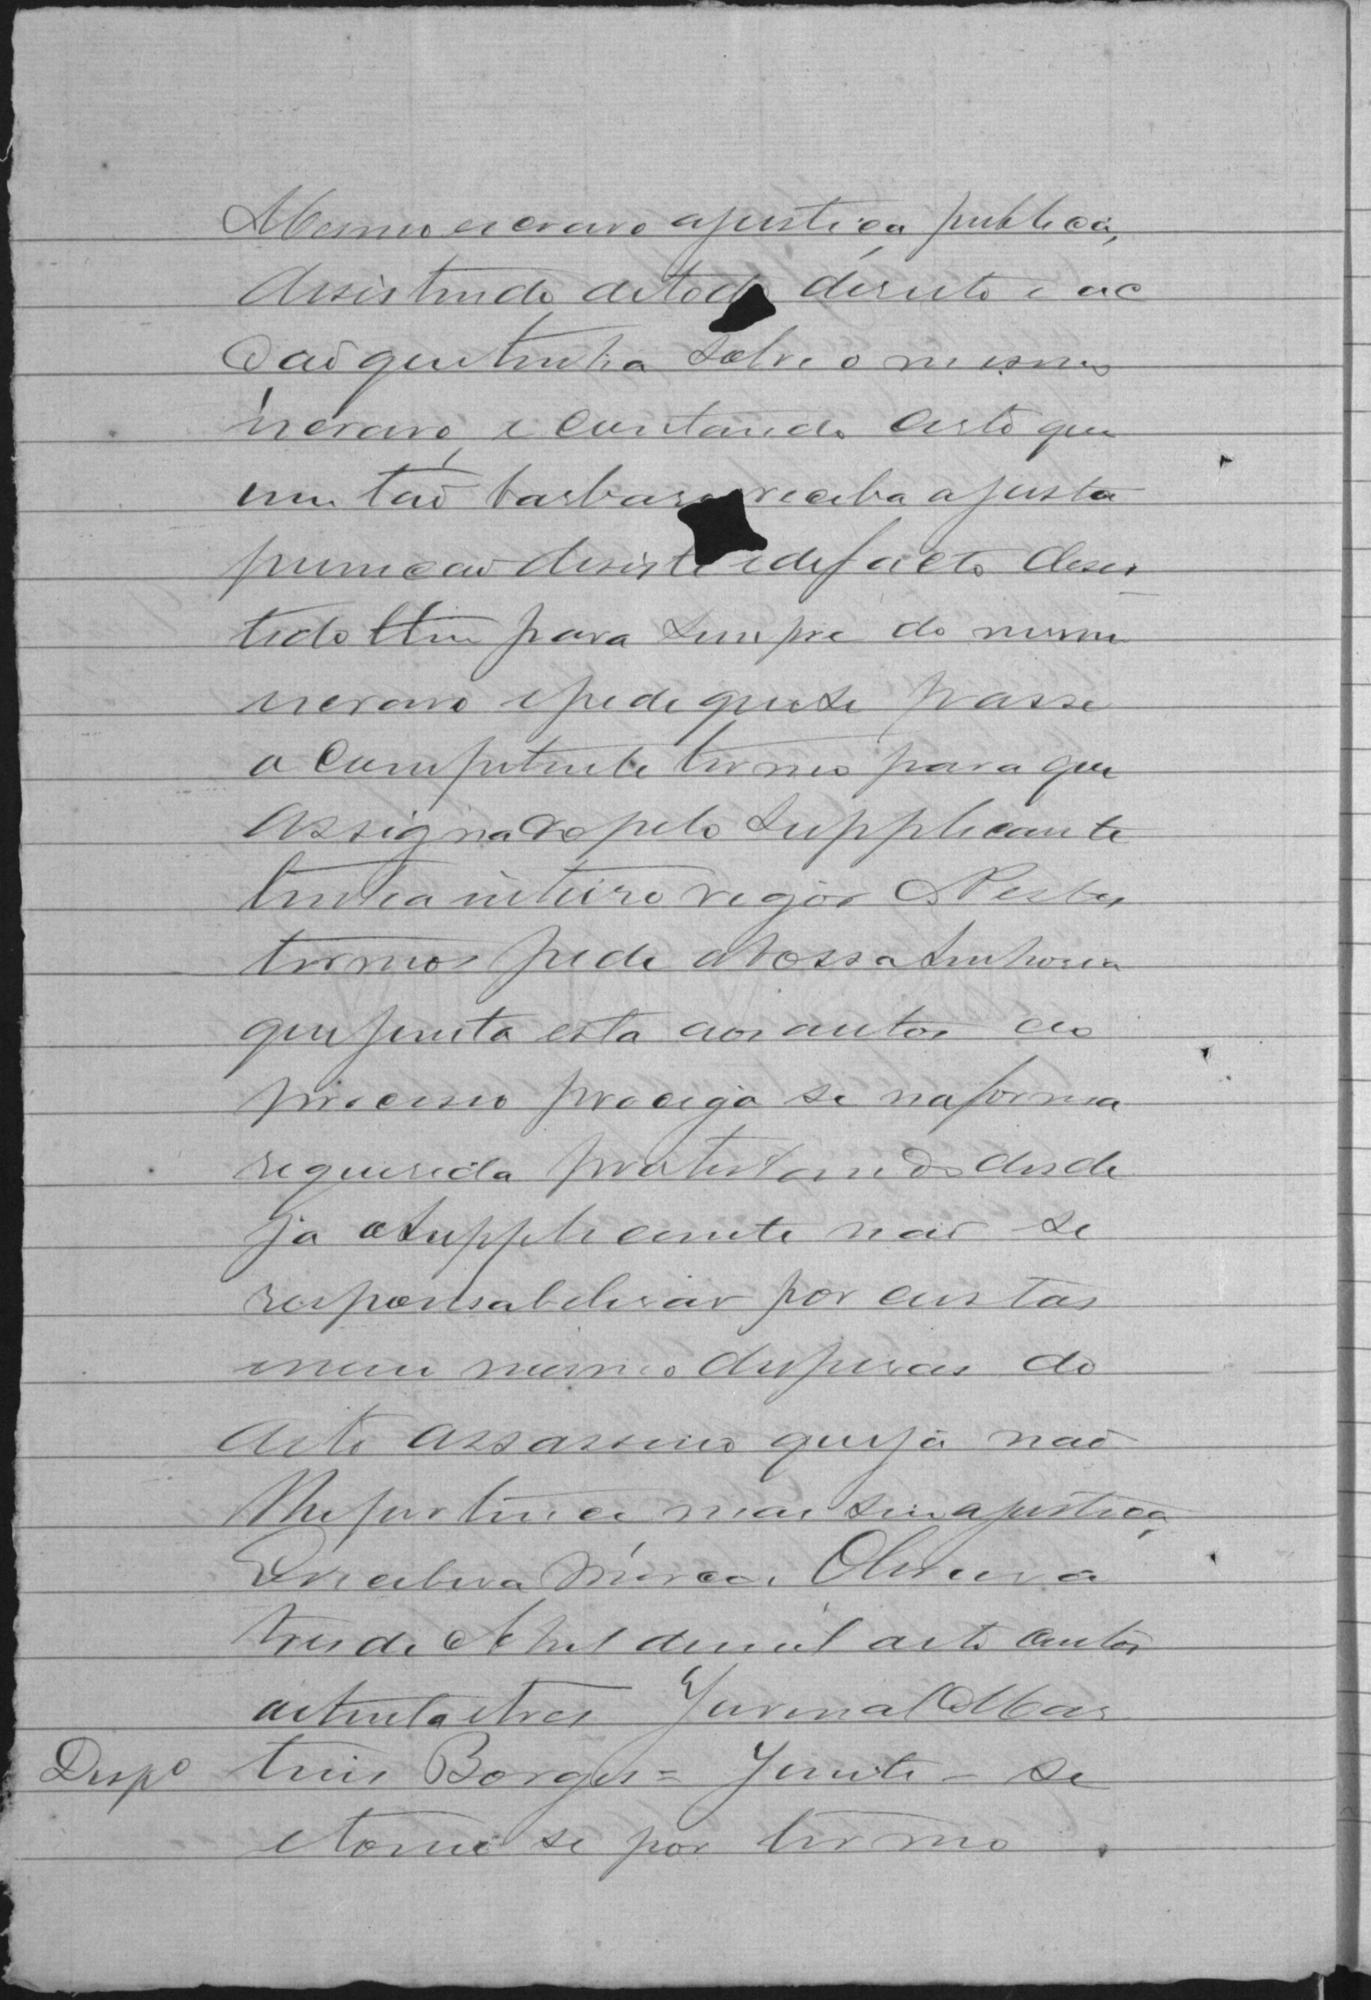 Mesmo escravo a justiça publica,
desistindo de todo direito e ac
cão que tinha sobre o mesmo
escravo, e contando certo que
um tão barbaro receba a justa
punicão desiste e de facto desis
tido tem para sempre do mesmo
escravo e pede que se passe
o competente termo para que
assignado pelo supplicante
tenha inteiro vigor Nestes
termos pede a Vossa Senhoria
que junta esta aos autos do
processo proceda se na forma
requerida protestando desde
ja o supplicante não se
responsabelisar por custas
nem mesmo despesas do
dito assassino que já não
lhe pertence mas sim a justiça,
E receberá Mercê. Oliveira
tres de Abril de mil oito centos
oitenta e tres Juvenal Mar
Desp.o tins Borges = Junte - se
e tome se por termo.